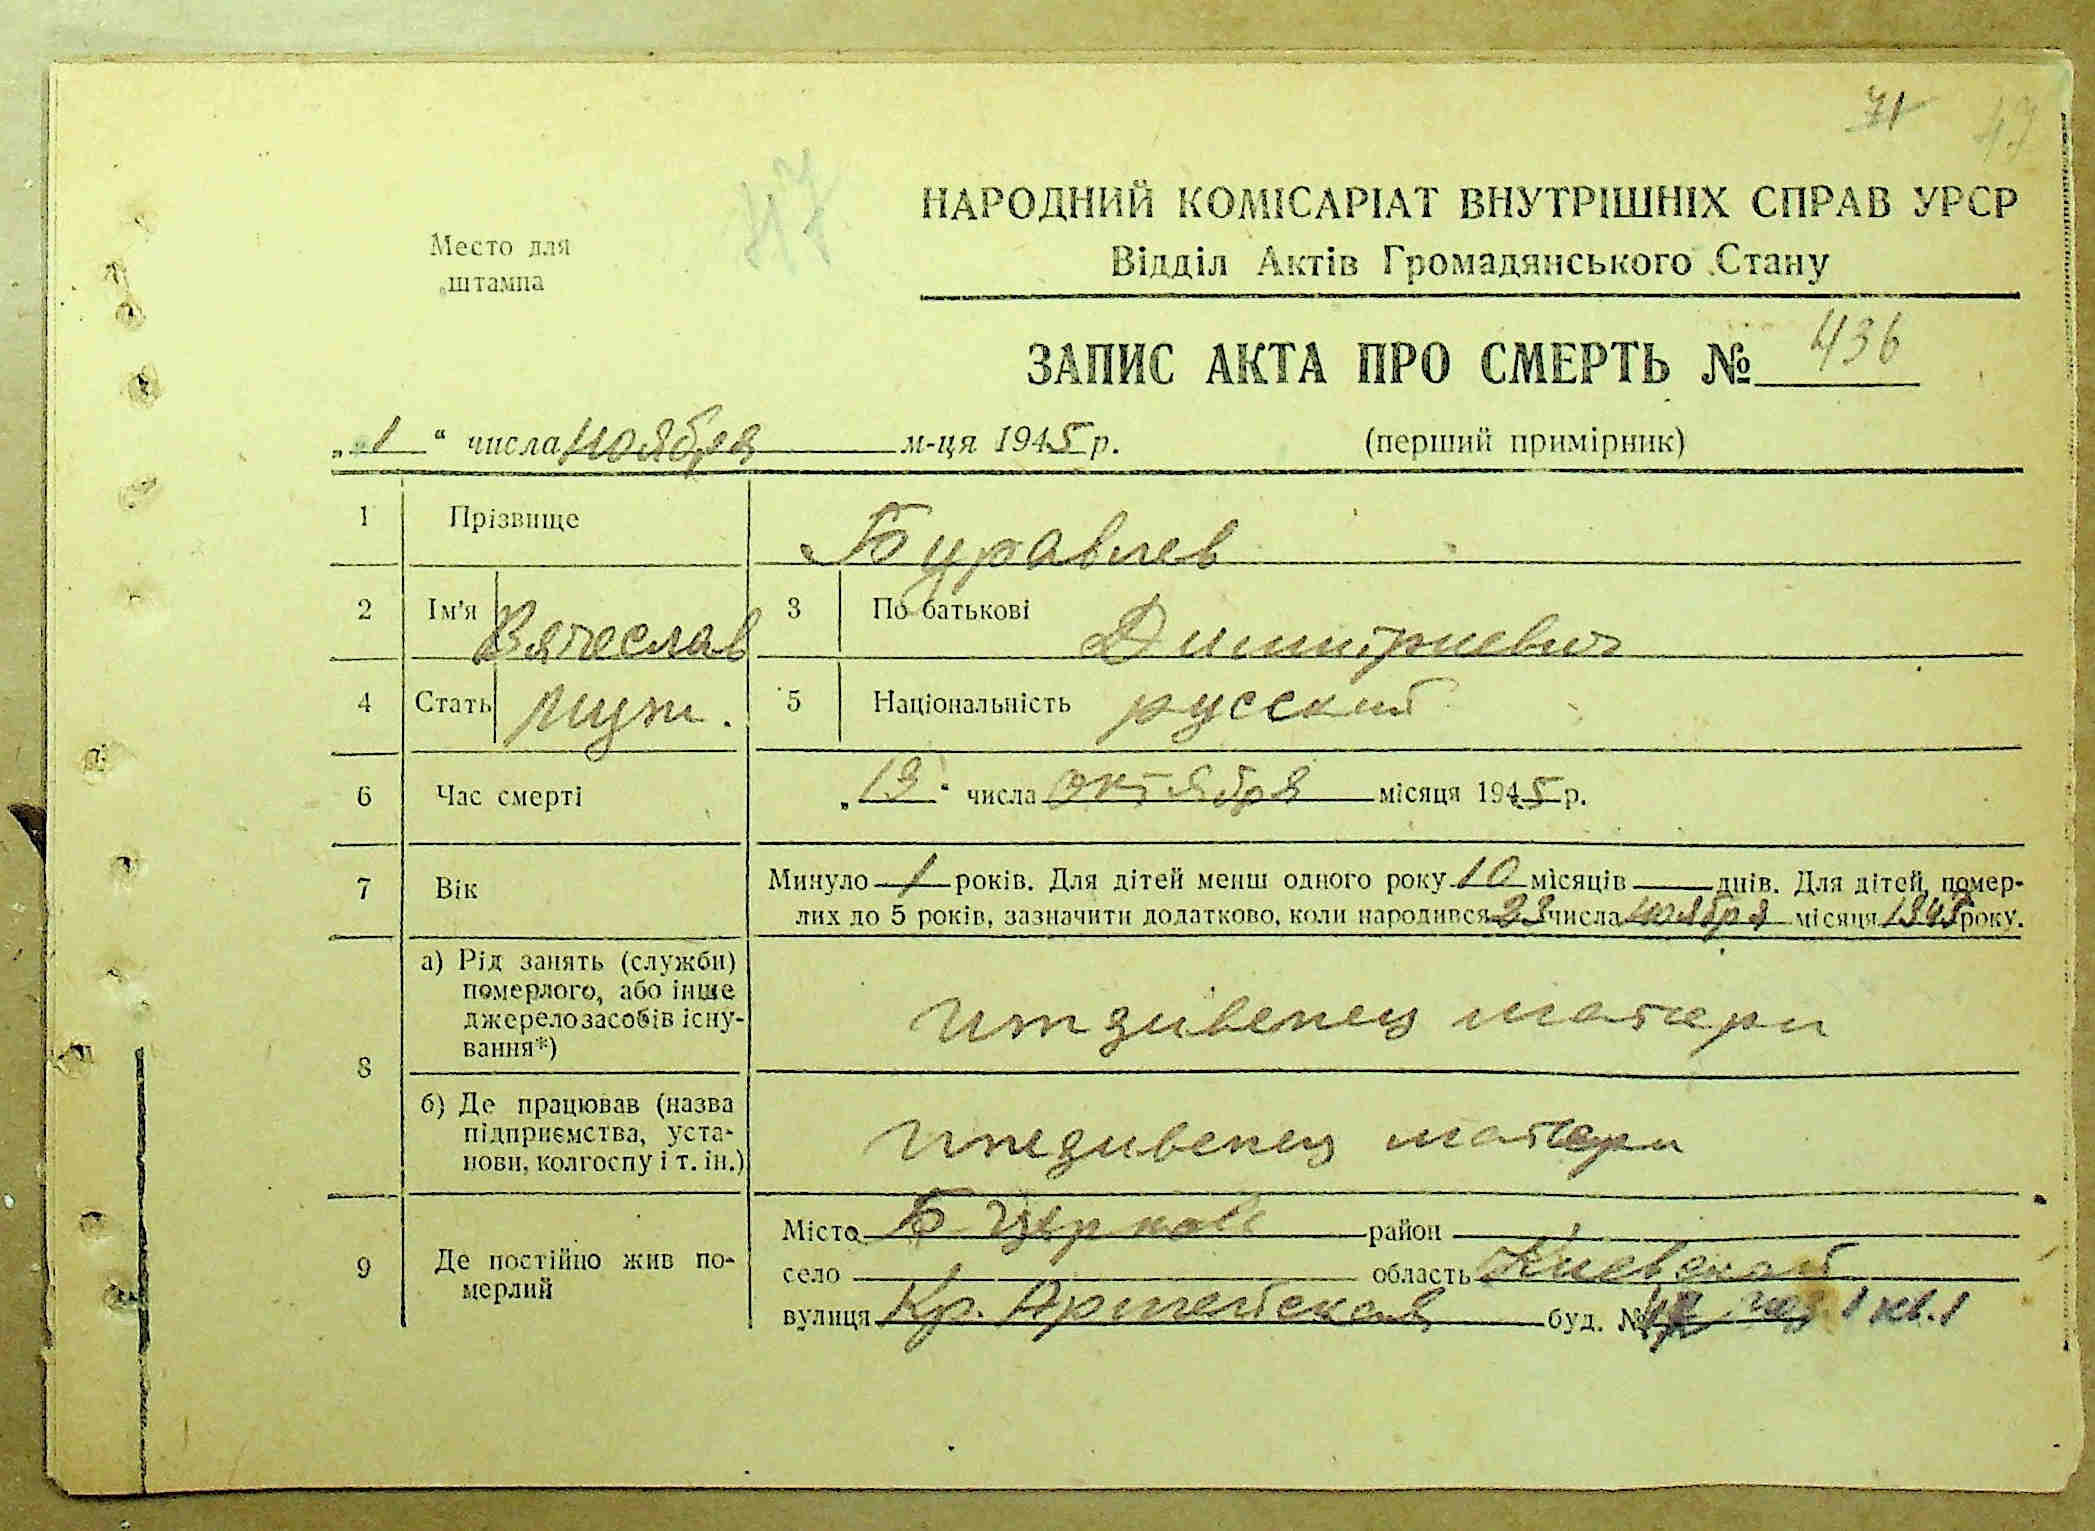 71 47
47
НАРОДНИЙ КОМІСАРІАТ ВНУТРІШНІХ СПРАВ УРСР
Место для
штампа
Відділ Актів Громадянського Стану
ЗАПИС АКТА ПРО СМЕРТЬ № 436
„1“ числа ноября м-ця 1945 р. (перший примірник)
1 Прізвище Буравлев
2 Ім'я Вячеслав 3 По батькові Димитриевич
4 Стать муж. 5 Національність русский
6 Час смерті „19“ числа октября місяця 1945 р.
7 Вік Минуло 1 років. Для дітей менш одного року 10 місяців днів. Для дітей, помер-
лих до 5 років, зазначити додатково, коли народився 23 числа ноября місяця 1943 року.
8 а) Рід занять (служби)
померлого, або інше
джерело засобів існу-
вання*)
иждивенец матери
б) Де працював (назва
підприємства, уста-
нови, колгоспу і т. ін.)
иждивенец матери
9 Де постійно жив по-
мерлий
Місто Б-Церковь район
село область Киевской
вулиця Кр. Армейская буд. № 1 кв. 1